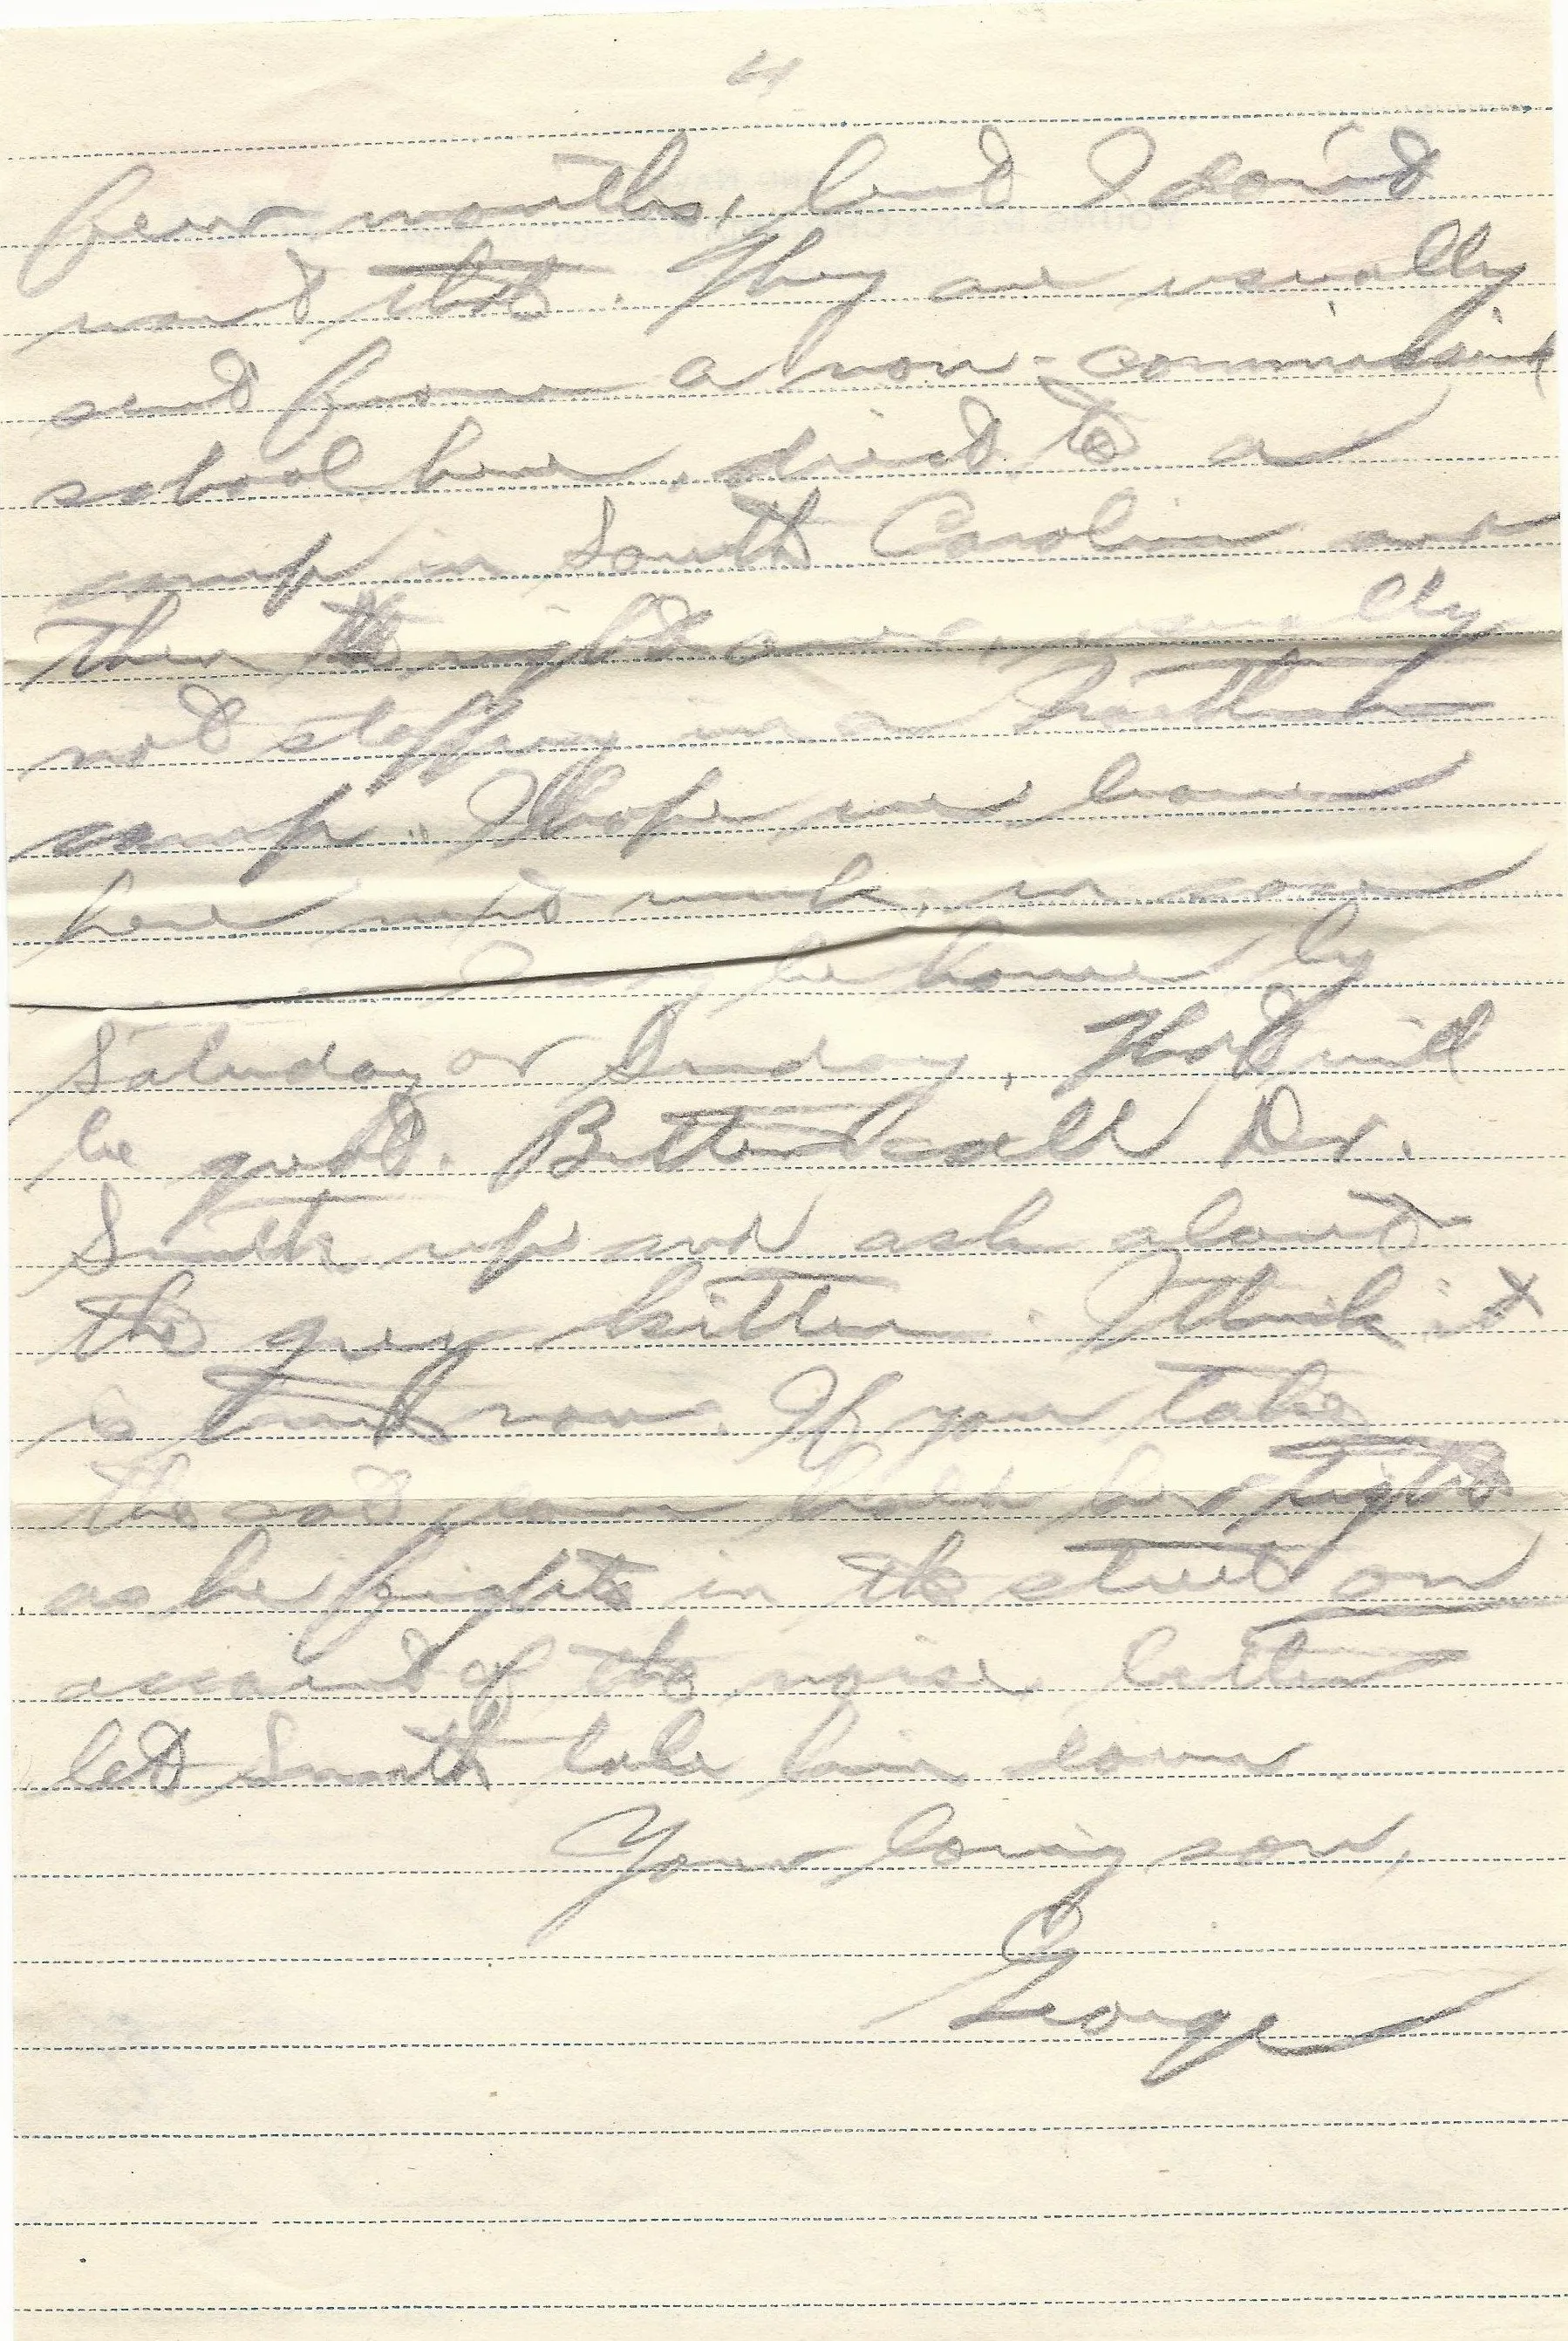 4
few months, but I don't
want that. They are usually
sent from a non-commissioned
school here, direct to a
camp in South Carolina and
then the right over, usually
not stopping in a Northern
camp. I hope we leave
here next week, in case
I may be home by
Saturday or Sunday. That will
be good. Better call Dr.
Smith up and ask about
the grey kitten. I think it
is time now. If you take
the cat down hold her tight
as he fights in the street on
account of the noise, better
let Smith take him down.
Your loving son,
George